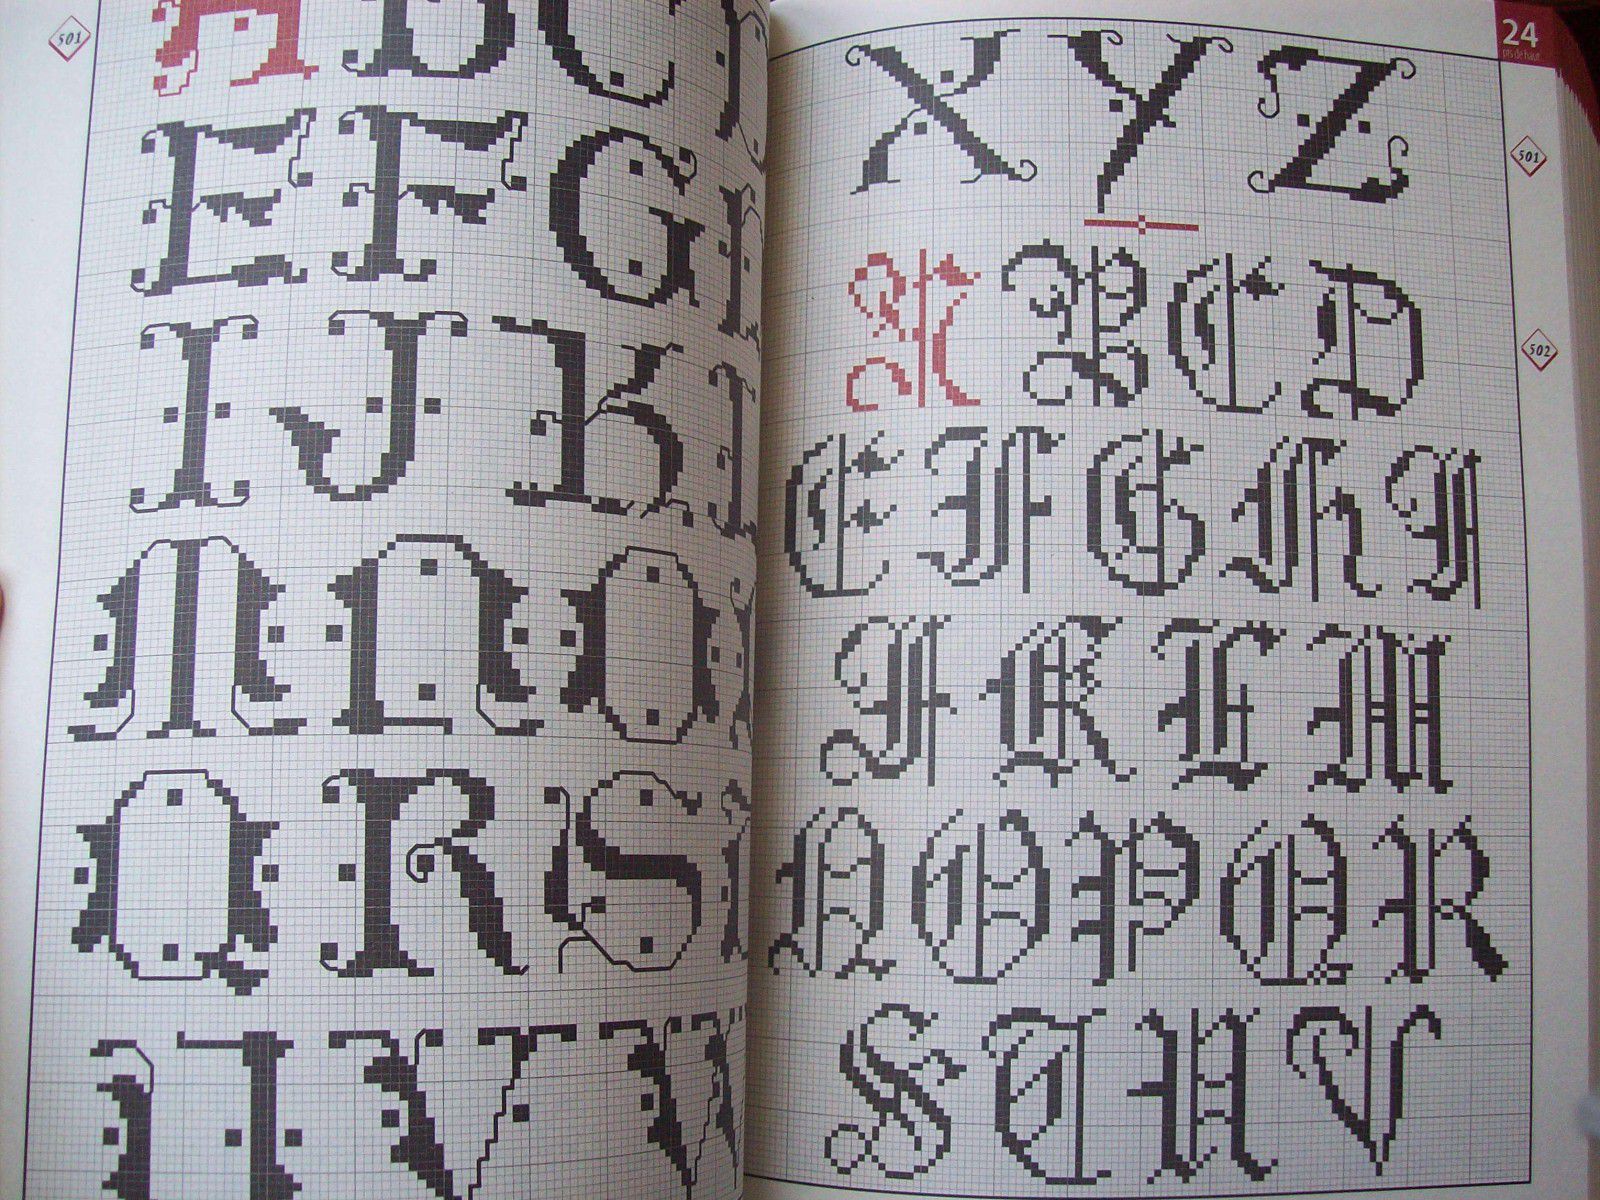 501
A B C
E F G
I J K
M N O
Q R S
U V W
24
pts de haut
X Y Z
501
A B C D
502
E F G H I
J K L M
N O P Q R
S T U V